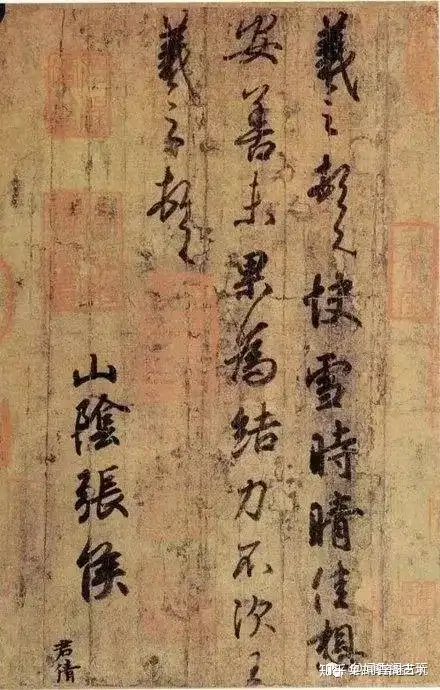 羲之頓首快雪時晴佳想
安善未果為結力不次王
羲之頓首
山陰張侯
君倩
知乎